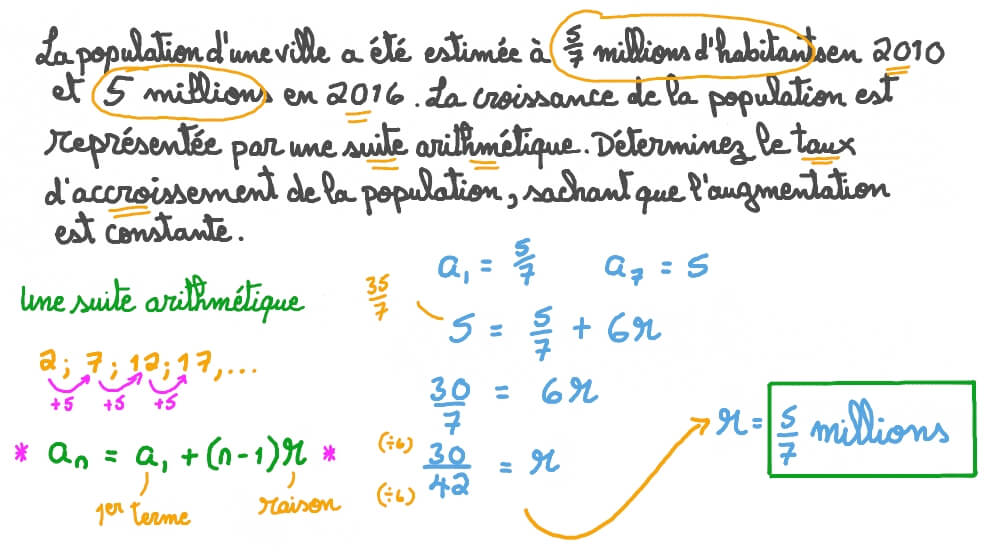 La population d'une ville a été estimée à 5/7 millions d'habitants en 2010
et 5 millions en 2016. La croissance de la population est
représentée par une suite arithmétique. Déterminez le taux
d'accroissement de la population, sachant que l'augmentation
est constante.
a₁ = 5/7 a₇ = 5
Une suite arithmétique
35/7
5 = 5/7 + 6r
2; 7; 12; 17, ...
+5 +5 +5
30/7 = 6r
* aₙ = a₁ + (n-1)r *
1er terme
raison
(÷6) 30/42 (÷6) = r
r = 5/7 millions